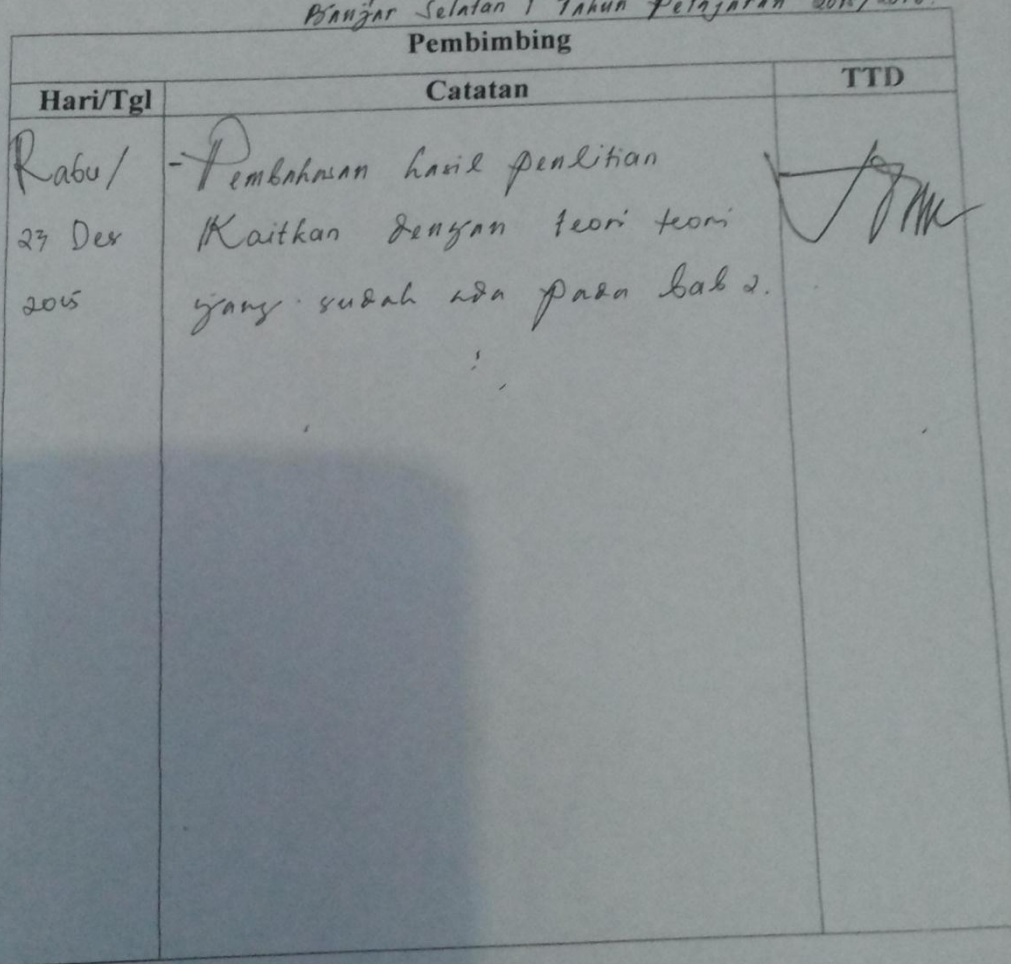 Banjar Selatan 1 Tahun Pelajaran 2015/2016.
Pembimbing
Hari/Tgl Catatan TTD
Rabu/ - Pembahasan hasil penlitian
23 Des Kaitkan dengan teori teori
2015 yang sudah ada pada bab 2.